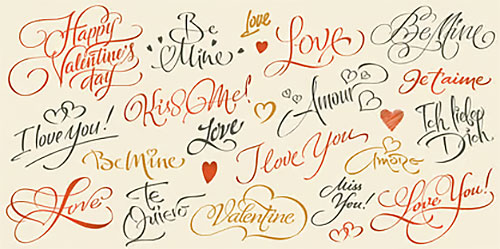 Happy
Valentine's
day
Be
Mine
Love
Love
Be Mine
Je t'aime
Kiss Me!
Amour
I love You!
Love
Ich liebe
Dich
Be Mine
I Love You
Amore
Love
Te
Quiero
Valentine
Miss
You!
Love You!